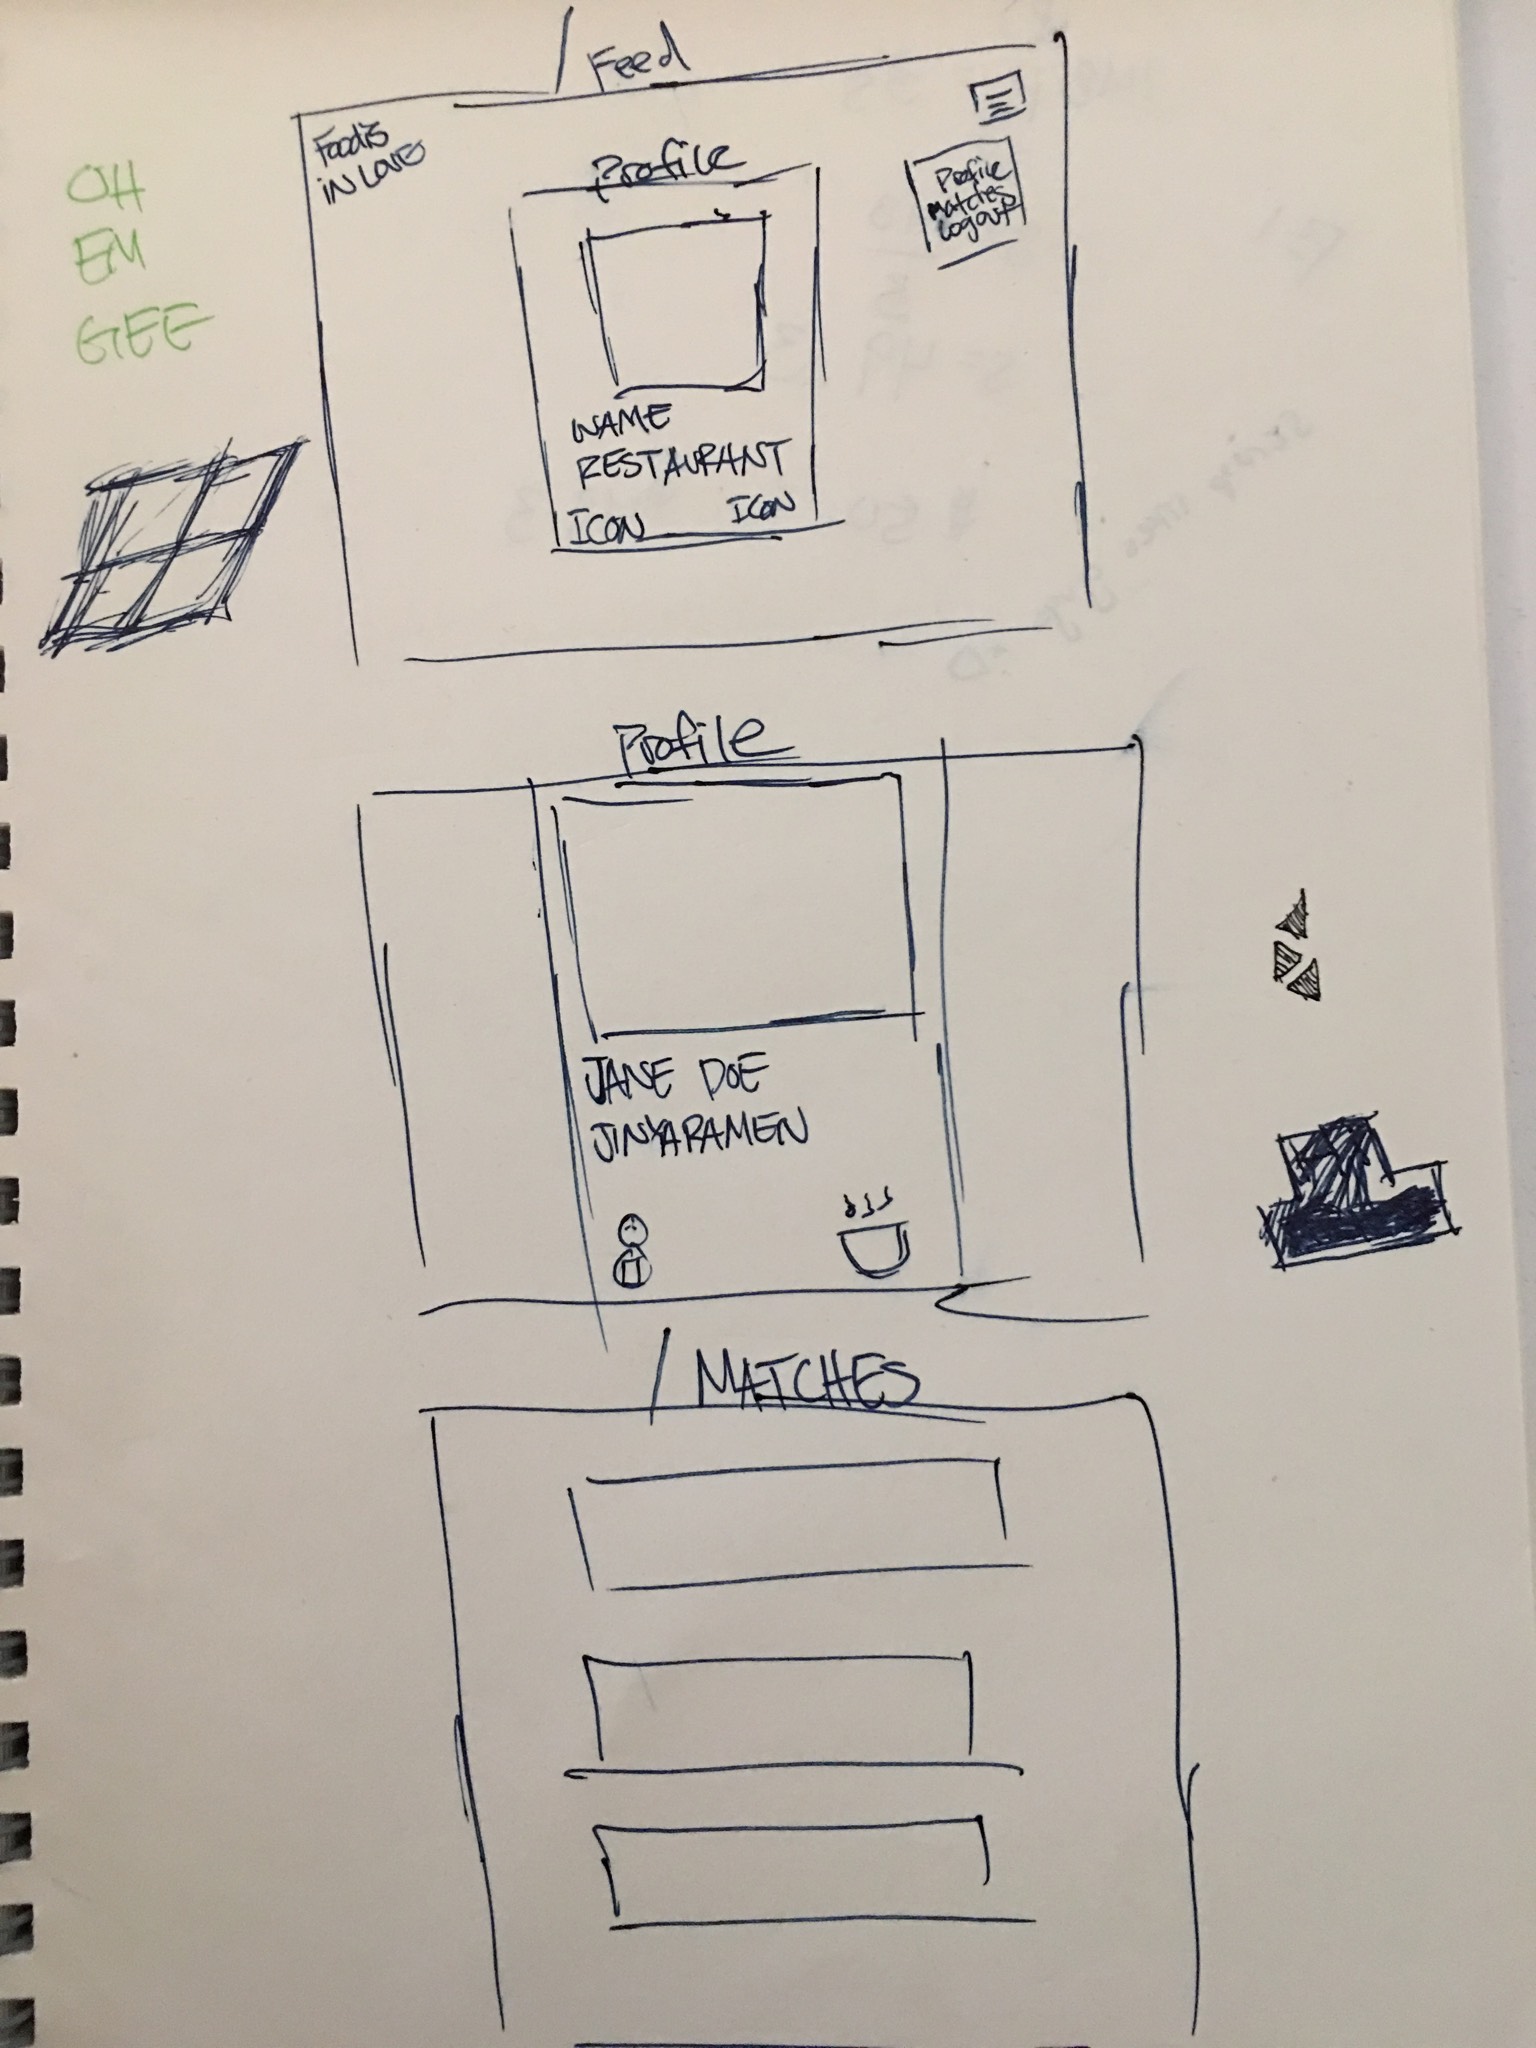 / Feed
Foodis
IN LOVE
Profile
Profile
Matches
Logout
OH
EM
GEE
NAME
RESTAURANT
ICON
ICON
Profile
JANE DOE
JINYARAMEN
/ MATCHES